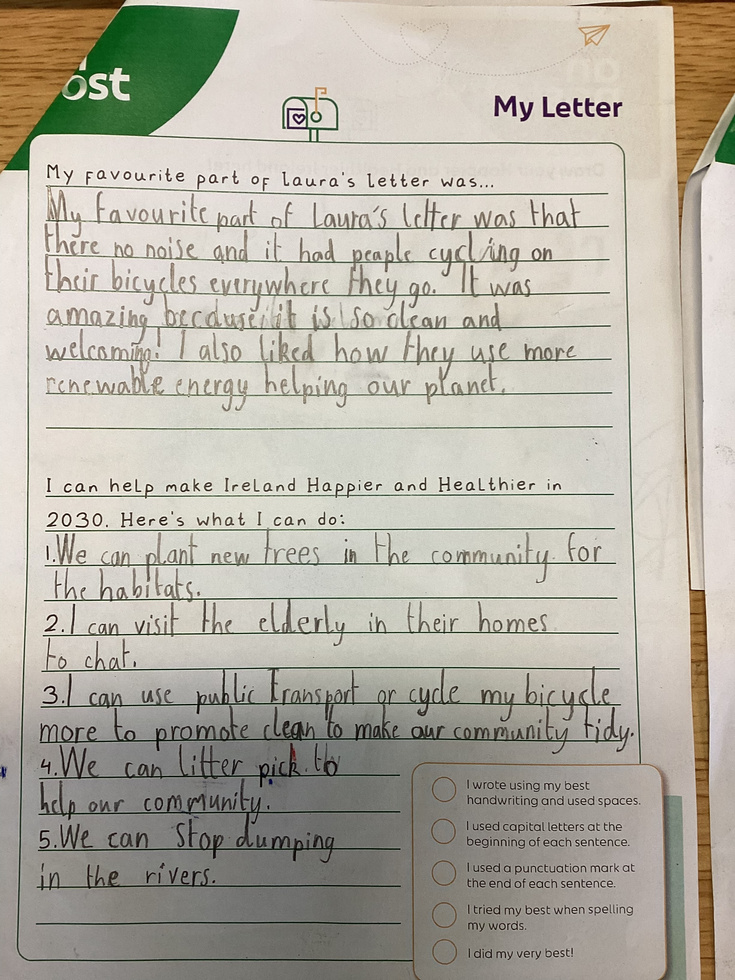 ost
My Letter
My favourite part of Laura's letter was...
My favourite part of Laura's letter was that
there no noise and it had people cycling on
their bicycles everywhere they go. It was
amazing because it is so clean and
welcoming! I also liked how they use more
renewable energy helping our planet.
I can help make Ireland Happier and Healthier in
2030. Here's what I can do:
1. We can plant new trees in the community for
the habitats.
2. I can visit the elderly in their homes
to chat.
3. I can use public transport or cycle my bicycle
more to promote clean to make our community tidy.
4. We can litter pick to
help our community.
5. We can stop dumping
in the rivers.
I wrote using my best
handwriting and used spaces.
I used capital letters at the
beginning of each sentence.
I used a punctuation mark at
the end of each sentence.
I tried my best when spelling
my words.
I did my very best!